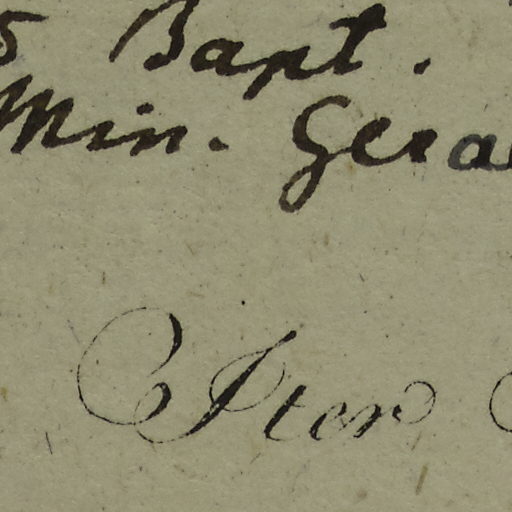 5 Bapt.
Min. Gera
Iter